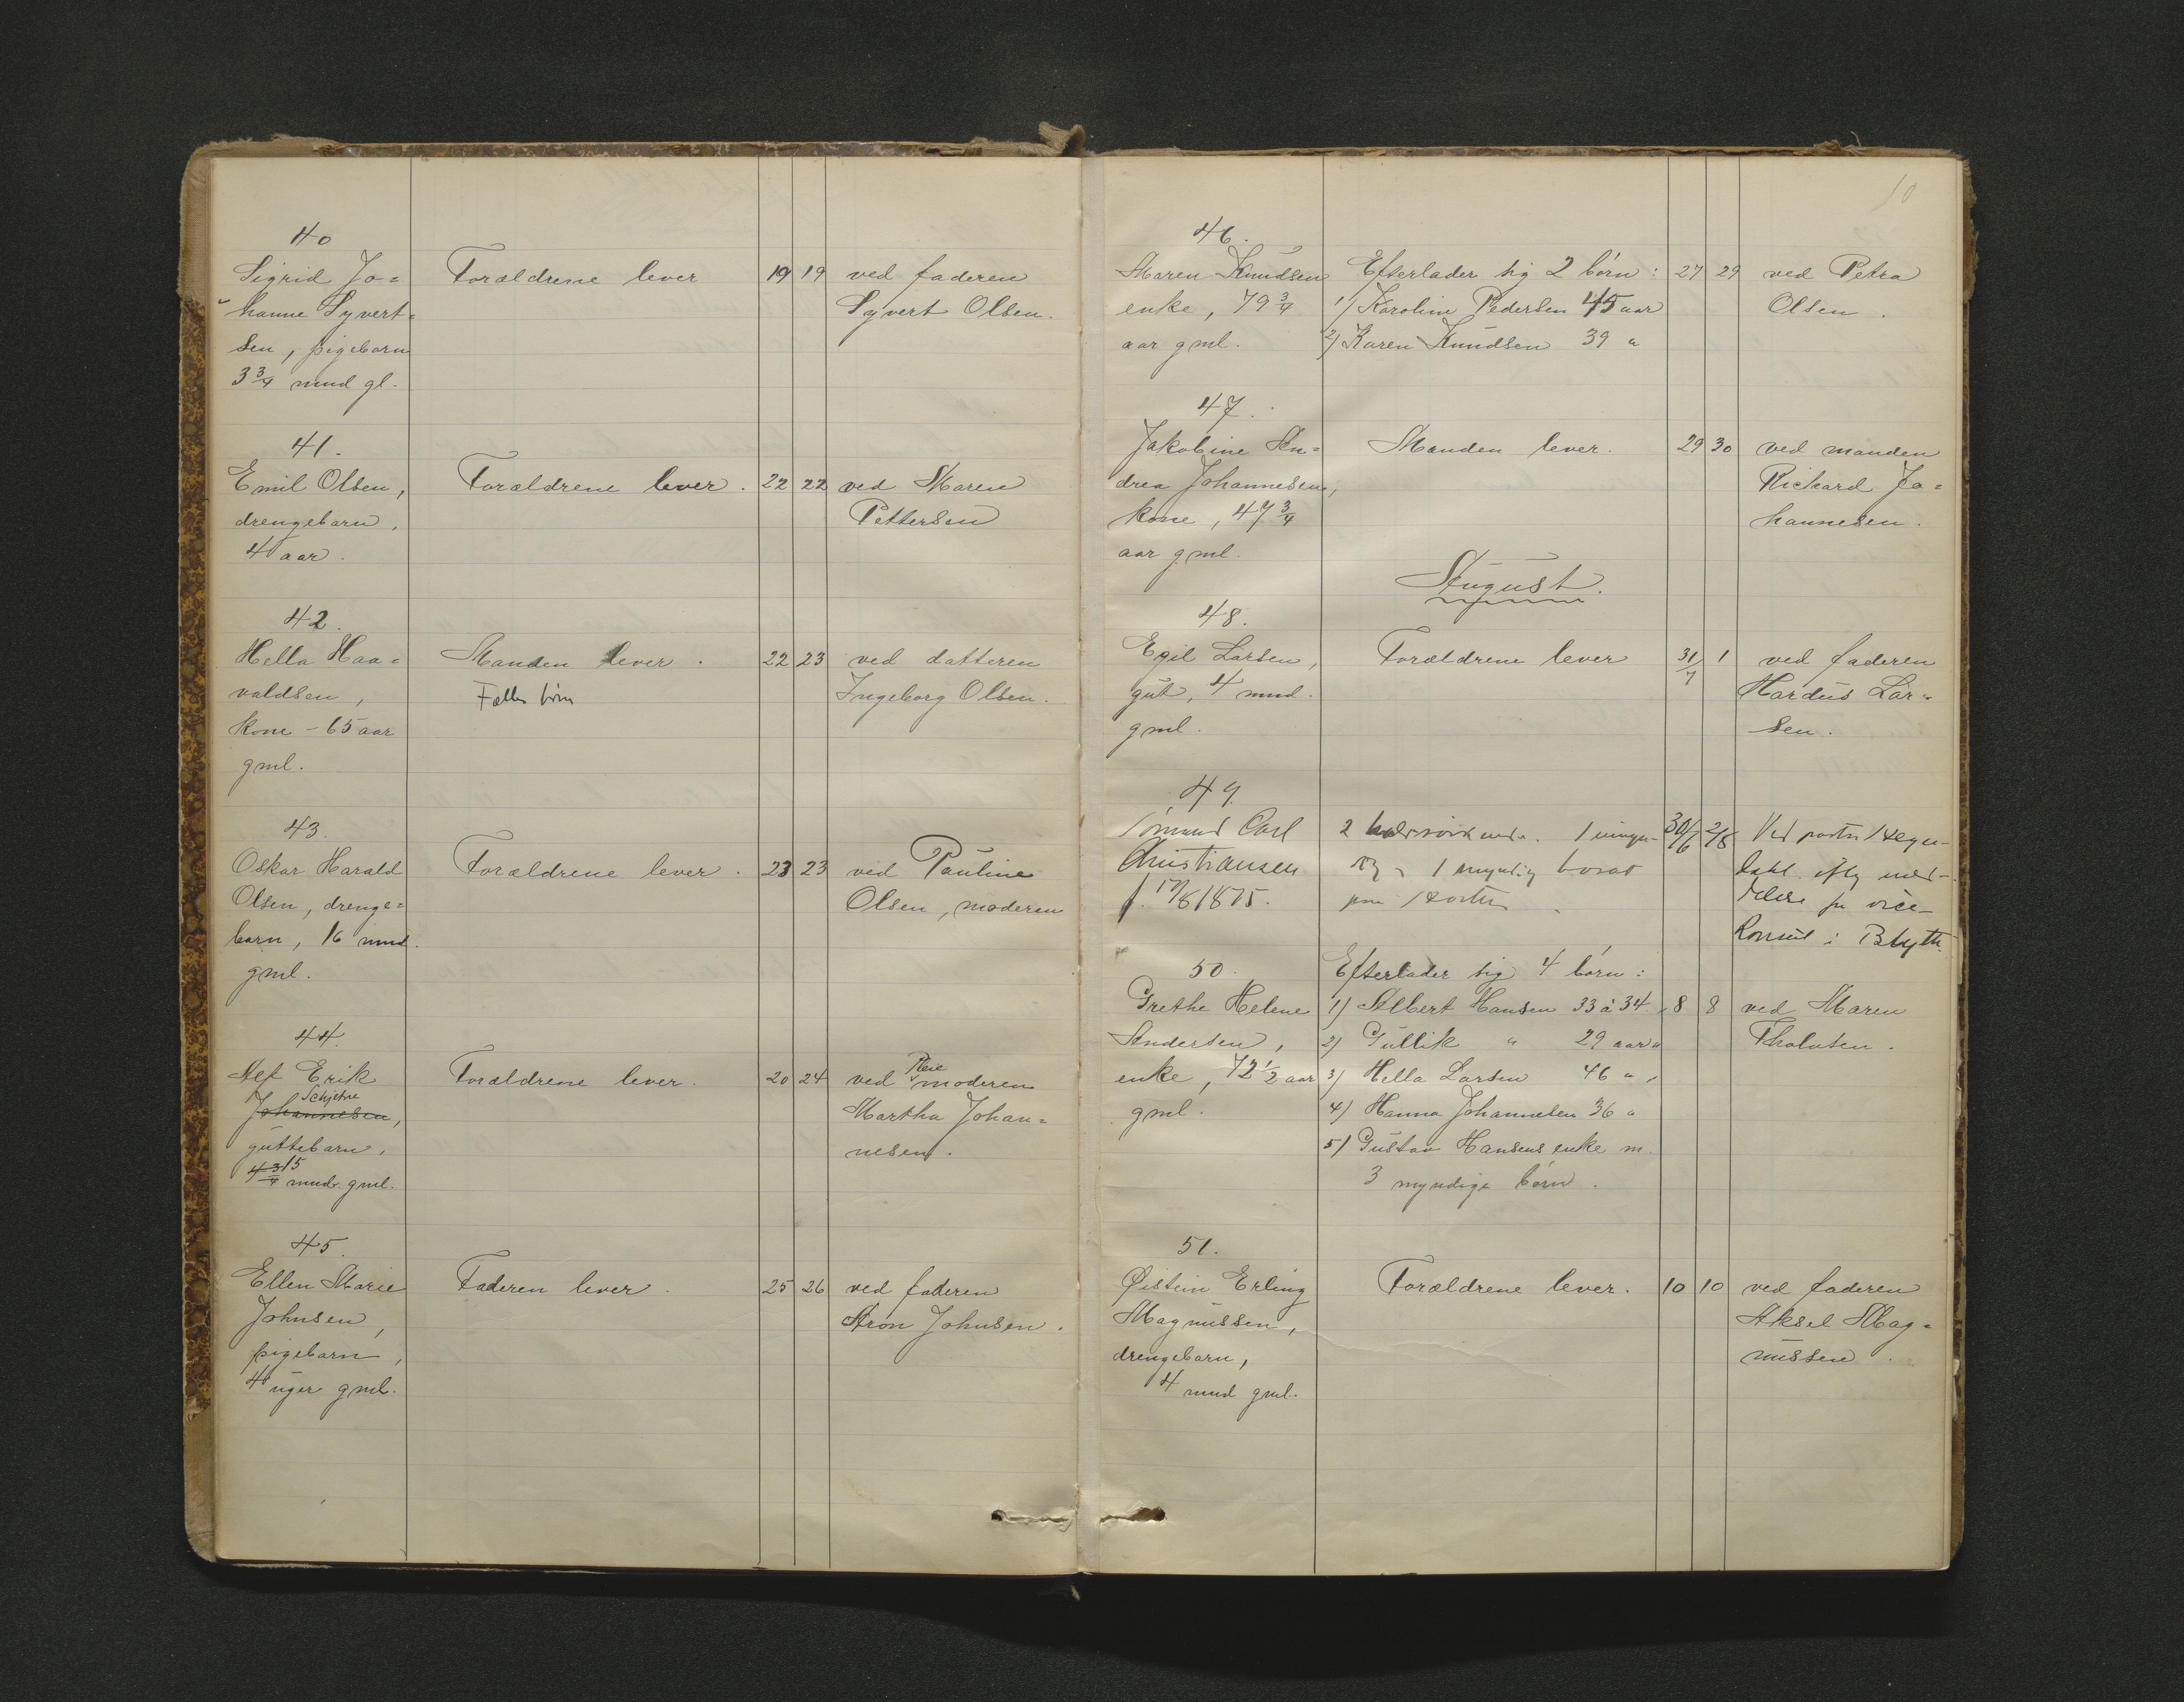 40
Sigrid Jo= Forældrene lever 19 19 ved faderen
hanne Syvert= Syvert Olsen.
sen, pigebarn
3 3/4 mnd gl.
41.
Emil Olsen, Forældrene lever. 22 22 ved Maren
drengebarn, Pettersen
4 aar.
42.
Hella Haa= Manden lever. 22 23 ved datteren
valdsen, Fælles børn Ingeborg Olsen.
kone - 65 aar
gml.
43.
Oskar Harald Forældrene lever. 23 23 ved Pauline
Olsen, drenge= Olsen, moderen
barn, 16 mnd.
gml.
44.
Alf Erik Forældrene lever. 20 24 ved Pleie moderen
Schjetne
Johannesen, Martha Johan=
guttebarn, nesen.
4 3/4 15 mndr. gml.
45.
Ellen Marie Faderen lever. 25 26 ved faderen
Johnsen, Aron Johnsen.
pigebarn,
4 uger gml.
10
46.
Maren Knudsen Efterlader sig 2 børn: 27 29 ved Petra
enke, 79 3/4 1) Karoline Pedersen 45 aar Olsen.
aar gml. 2) Karen Knudsen 39 "
47.
Jakobine An= Manden lever. 29 30 ved manden
drea Johannesen, Rickard Jo=
kone, 47 3/4 hannesen.
aar gml.
August.
48.
Egil Larsen, Forældrene lever 31/7 1 ved faderen
gut, 4 mnd. Hardus Lar=
gml. sen.
49.
Carl 2 1 30/6 2/8 Ved
Christiansen 1 myndig
f. 17/6 1875. vice-
konsul i Blyth.
50. Efterlader sig 4 børn:
Grethe Helene 1) Albert Hansen 33 à 34 8 8 ved Maren
Andersen, 2) Gullik " 29 aar " Tholvsen.
enke, 72 1/2 aar 3) Hella Larsen 46 " "
gml. 4) Hanna Johannesen 36 "
5) Gustav Hansens enke m.
3 myndige børn.
51.
Øistein Erling Forældrene lever. 10 10 ved faderen
Magnussen, Aksel Mag=
drengebarn, nussen.
4 mnd gml.